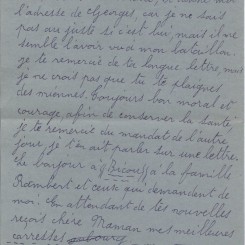 l'adresse de Georges, car je ne sais
pas au juste si c'est lui, mais il me
semble l'avoir vu à mon bataillon.
je te remercie de ta longue lettre, mais
je ne crois pas que tu te plaignes
des miennes. Toujours bon moral et
courage, afin de conserver la santé,
je te remercie du mandat de l'autre
jour, je t'en ait parler sur une lettre.
bonjour à la famille
Rambert et ceux qui demandent de
moi. En attendant de tes nouvelles
reçois chère Maman mes meilleures
caresses